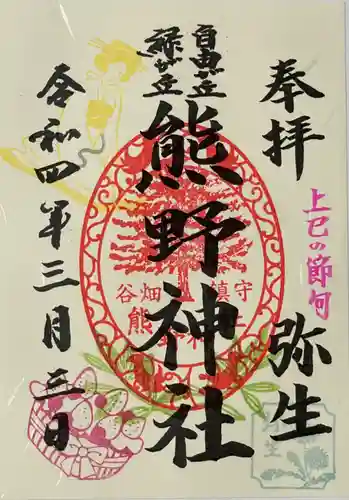 奉拝
上巳の節句
弥生
自由が丘
緑が丘
熊野神社
谷畑 鎮守
熊野神社
令和四年三月三日
弥生